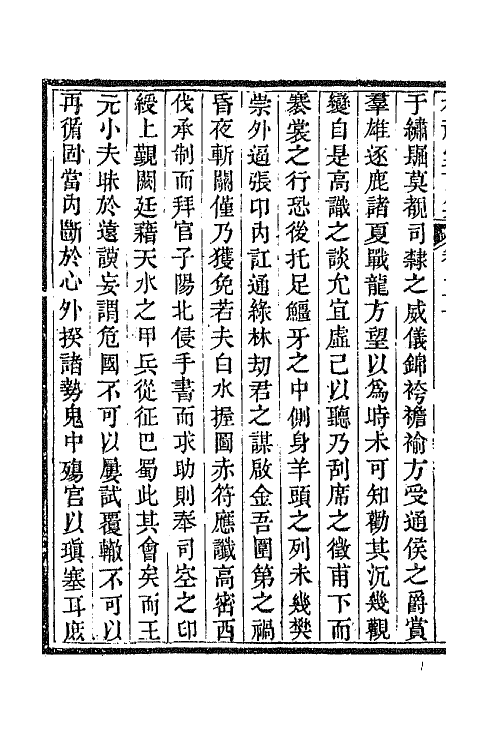 于繡䘿莫覩司隸之威儀錦袴襜褕方受通侯之爵賞
羣雄逐鹿諸夏戰龍方望以爲時未可知勸其沉幾觀
變自是高識之談尤宜虛己以聽乃刮席之徵甫下而
褰裳之行恐後托足鱷牙之中側身羊頭之列未幾樊
崇外逼張卬內訌通綠林劫君之謀啟金吾圍第之禍
昏夜斬關僅乃獲免若夫白水握圖赤符應讖高密西
伐承制而拜官子陽北侵手書而求助則奉司空之印
綬上覲闕廷藉天水之甲兵從征巴蜀此其會矣而王
元小夫昧於遠謨妄謂危國不可以屢試覆轍不可以
再循囂當內斷於心外揆諸勢鬼中殤宮以瑱塞耳庶